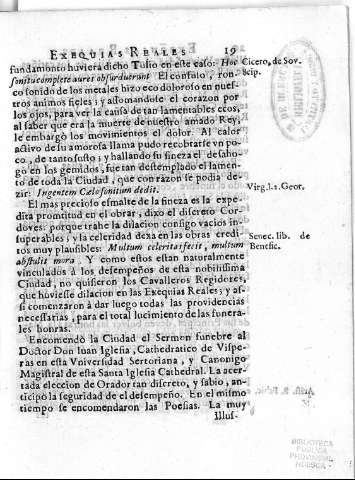 EXEQUIAS REALES 19
fundamonto huviera dicho Tulio en este caso: Hoc
sonitu complete aures obsurduerunt El confuso, ron-
co sonido de los metales hizo eco doloroso en nues-
tros animos fieles; y assomandose el corazon por
los ojos, para ver la causa de tan lamentables ecos,
al saber que era la muerte de nuestro amado Rey,
le embargò los movimientos el dolor. Al calor
activo de su amorosa llama pudo recobrarse vn po-
co, de tanto susto; y hallando su fineza el desaho-
go en los gemidos, fue tan destemplado el lamen-
to de toda la Ciudad, que con razon se podia de-
zir: Ingentem Cælo sonitum dedit.
El mas precioso esmalte de la fineza es la expe-
dita promtitud en el obrar, dixo el discreto Cor-
doves: porque trahe la dilacion consigo vacios in-
superables; y la celeridad dexa en las obras credi-
tos muy plausibles: Multum celeritas fecit, multum
abstulit mora. Y como estos estan naturalmente
vinculados à los desempeños de esta nobilissima
Ciudad, no quisieron los Cavalleros Regidores,
que huviesse dilacion en las Exequias Reales; y as-
si comenzaron à dar luego todas las providencias
necessarias, para el total lucimiento de las funera-
les honras.
Encomendò la Ciudad el Sermon funebre al
Doctor Don Iuan Iglesia, Cathedratico de Vispe-
ras en esta Vniversidad Sertoriana, y Canonigo
Magistral de esta Santa Iglesia Cathedral. La acer-
tada eleccion de Orador tan discreto, y sabio, an-
ticipò la seguridad de el desempeño. En el mismo
tiempo se encomendaron las Poesias. La muy
Illus-
Cicero, de Sov.
Scip.
Virg. l. 2. Geor.
Senec. lib. de
Benefic.
BIBLIOTECA
PUBLICA
PROVINCIAL
HUESCA